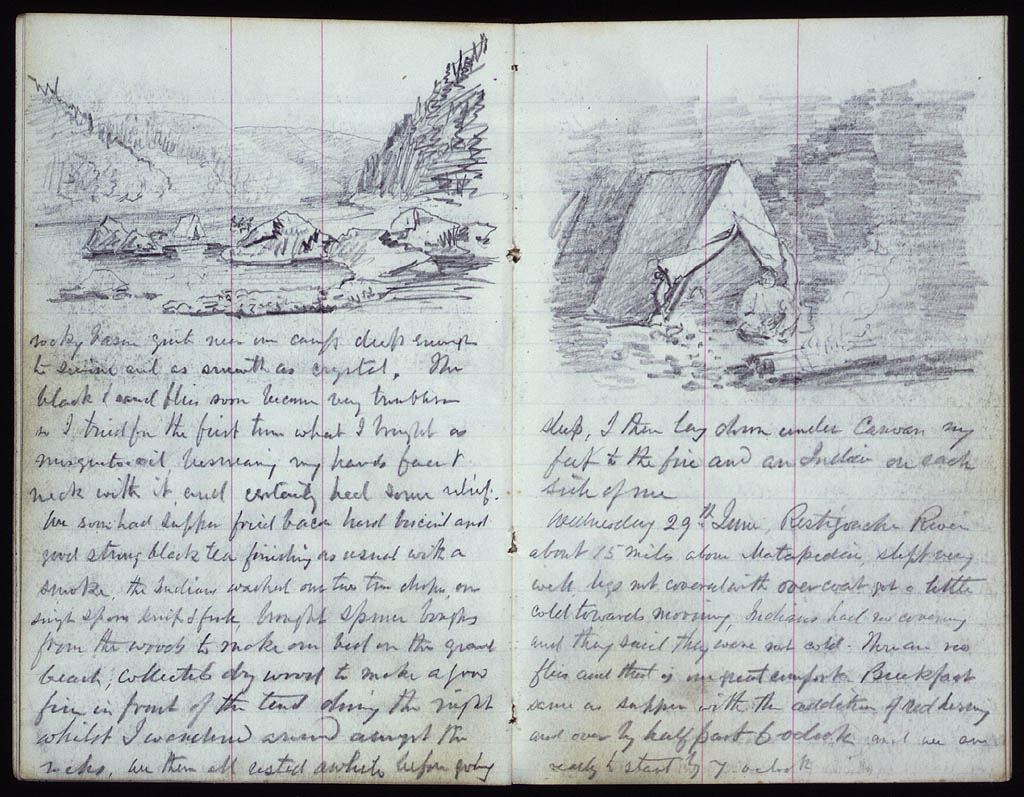 rocky basin quite near our camp deep enough
to swim and as smooth as crystal. The
black & sand flies soon became very troublesome
so I tried for the first time what I bought as
mosquito oil besmearing my hands face &
neck with it and certainly had some relief.
We soon had supper fried bacon hard biscuit and
good strong black tea finishing as usual with a
smoke, the Indians washed our two tin cups, our
single spoon knife & fork, brought spruce boughs
from the woods to make our bed on the gravel
beach, collected dry wood to make a good
fire in front of the tent during the night
whilst I wandered around amongst the
rocks, we then all rested awhile before going
sleep, I then lay down under Canvas my
feet to the fire and an Indian on each
side of me
Wednesday 29th June, Restigouche River
about 15 miles above Matapedia, slept very
well legs not covered with overcoat got a little
cold towards morning, Indians had no covering
and they said they were not cold. There are no
flies and that is one great comfort. Breakfast
same as supper with the addition of red herring
and over by half past 6 oclock and we are
ready to start by 7 oclock